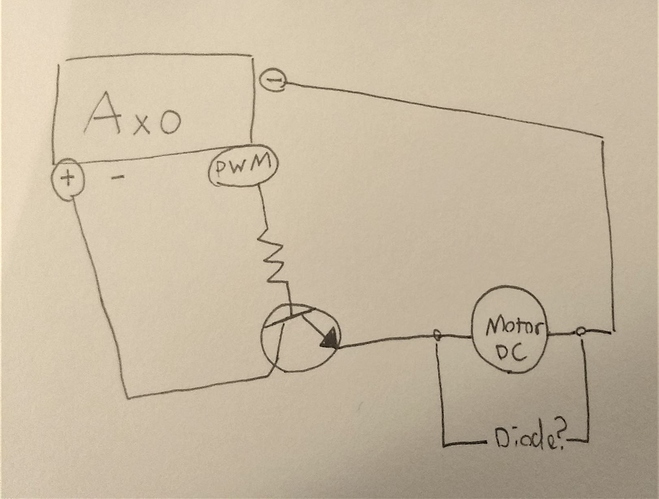 Axo
−
+ -
PWM
Motor
DC
Diode?